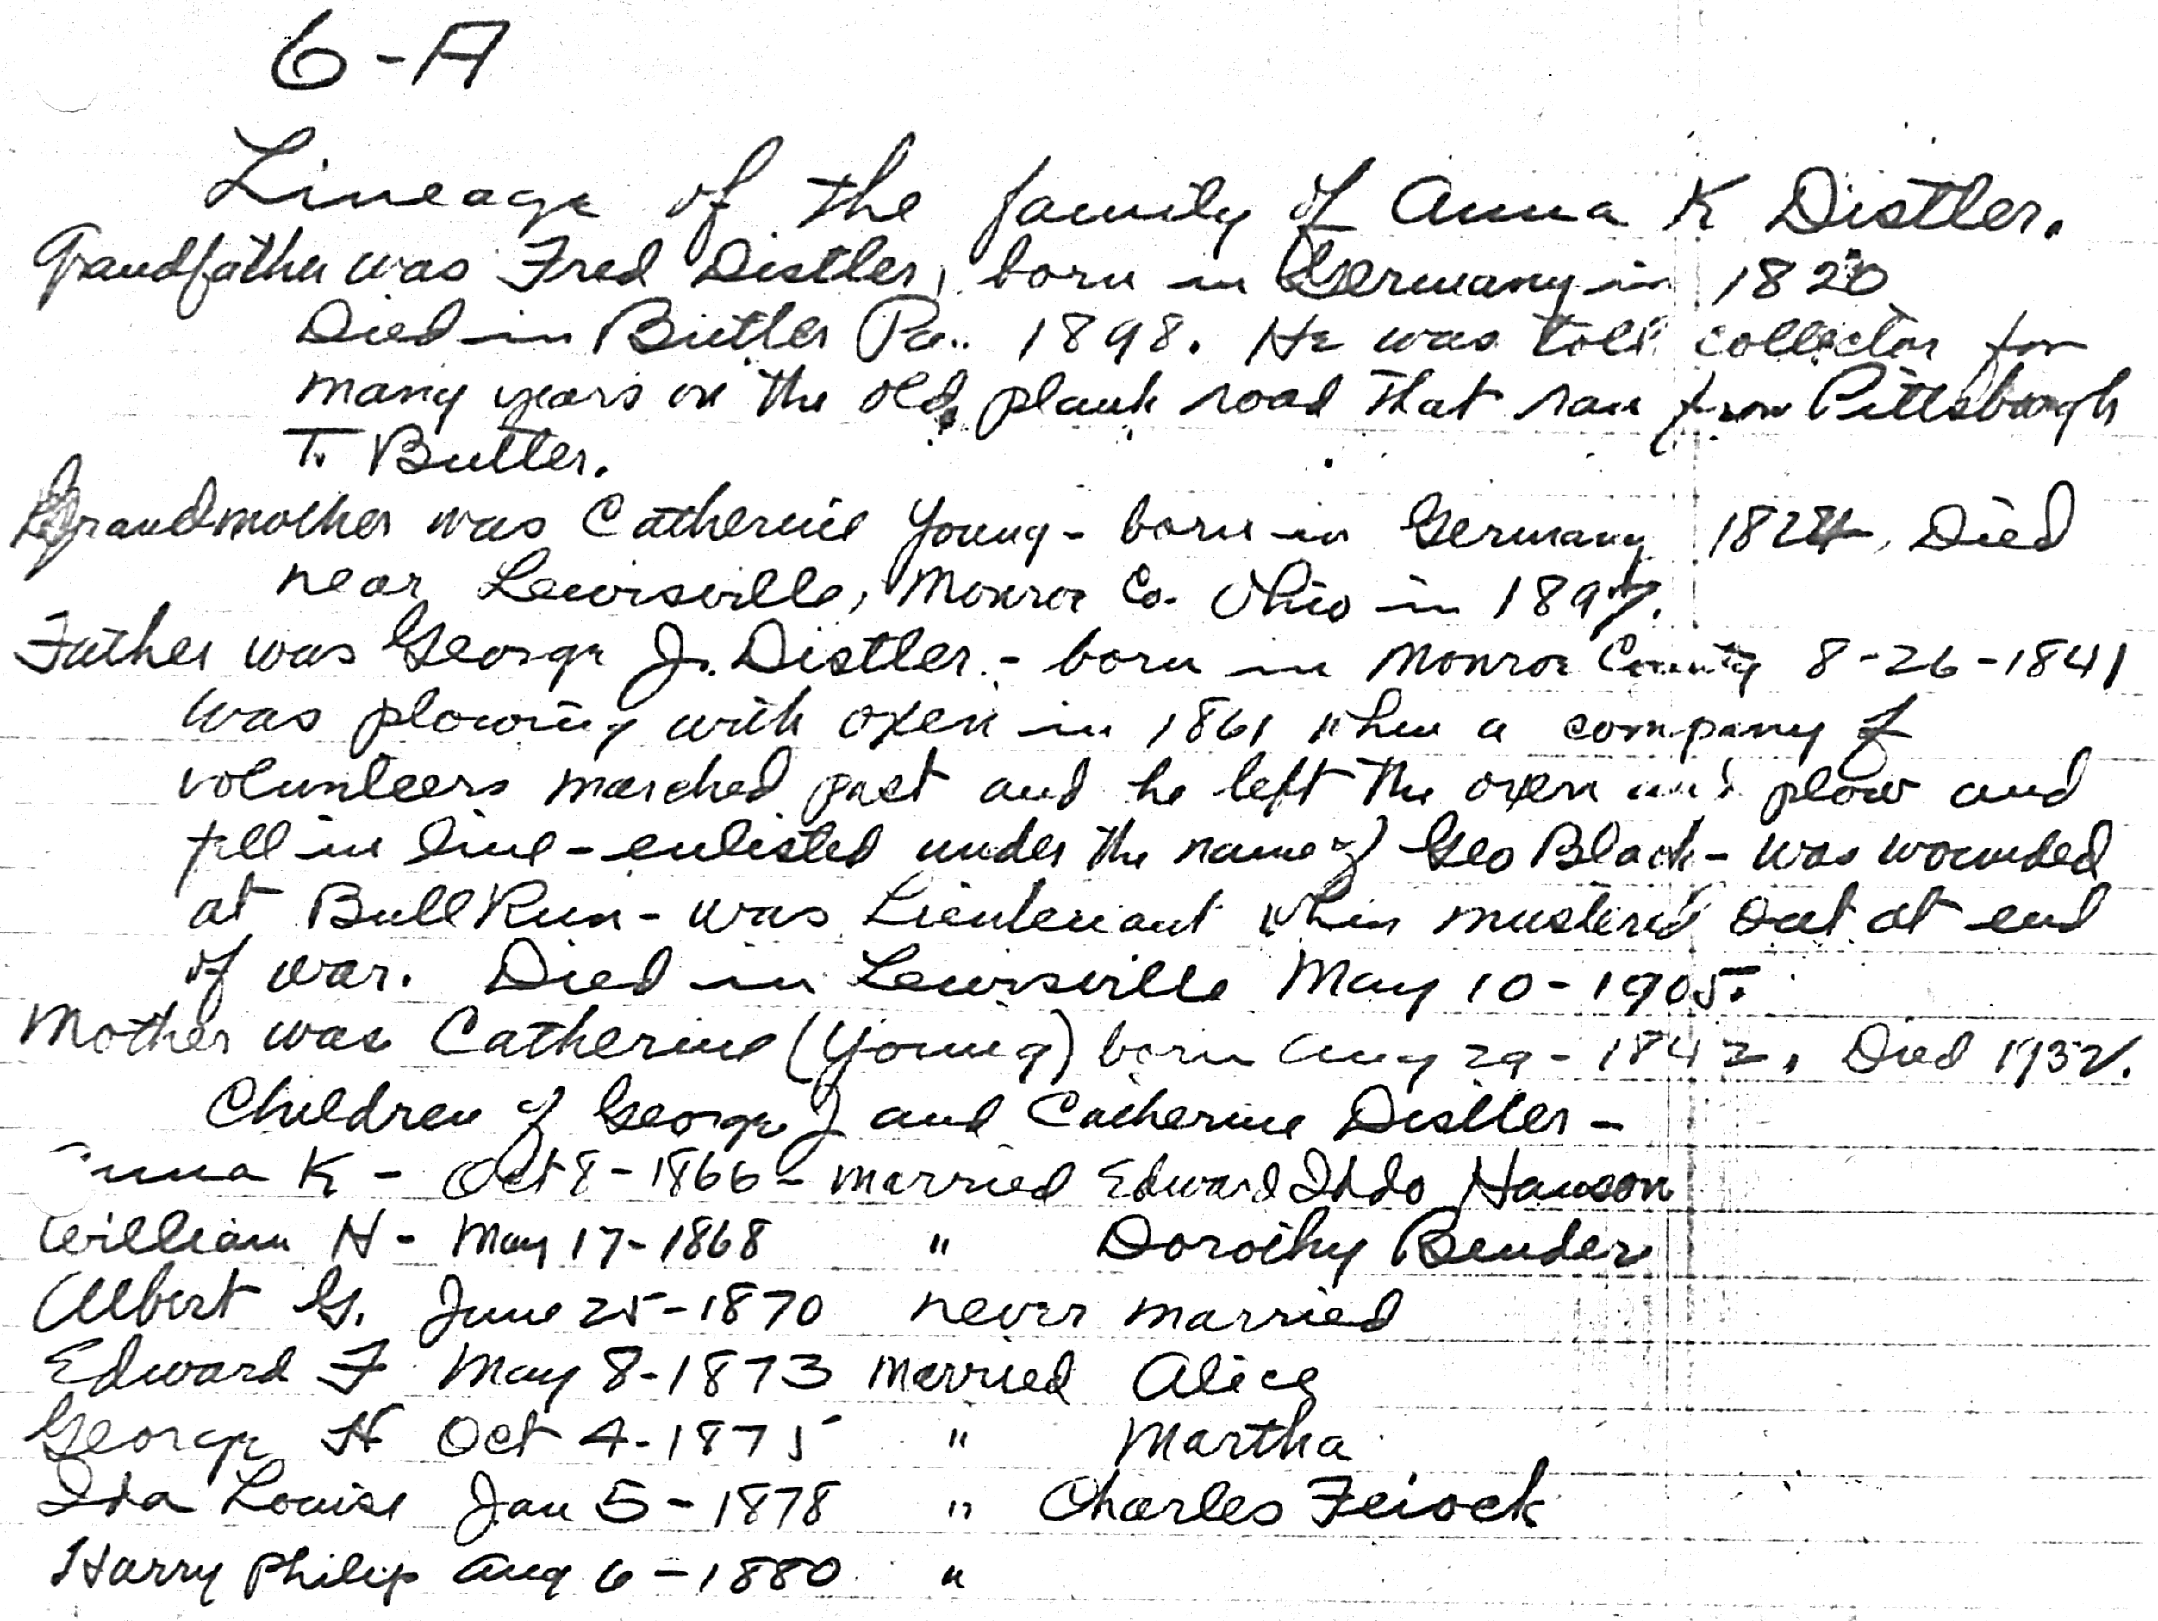 6-A
Lineage of the family of Anna K Distler.
Grandfather was Fred Distler, born in Germany in 1820
Died in Butler Pa.. 1898. He was toll collector for
many years on the old plank road that ran from Pittsburgh
To Butler.
Grandmother was Catherine Young - born in Germany 1824, Died
near Lewisville, Monroe Co. Ohio in 1897.
Father was George J. Distler - born in Monroe County 8-26-1841
was plowing with oxen in 1861 when a company of
volunteers marched past and he left the oxen and plow and
fell in line - enlisted under the name of Geo Black - was wounded
at Bull Run - was Lieutenant when mustered out at end
of war. Died in Lewisville May 10-1905.
Mother was Catherine (Young) born Aug 29-1842. Died 1932.
Children of George J and Catherine Distler -
Anna K - Oct 8-1866 - married Edward Iddo Hanson
William H - May 17-1868 " Dorothy Bender
Albert G. June 25-1870 never married
Edward F May 8-1873 married Alice
George H Oct 4-1875 " Martha
Ida Louise Jan 5-1878 " Charles Feiock
Harry Philip Aug 6-1880 "